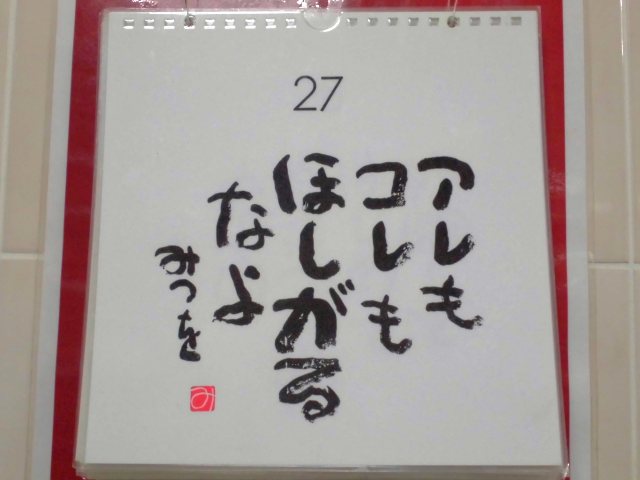 27
アレも
コレも
ほしがる
なよ
みつを
み